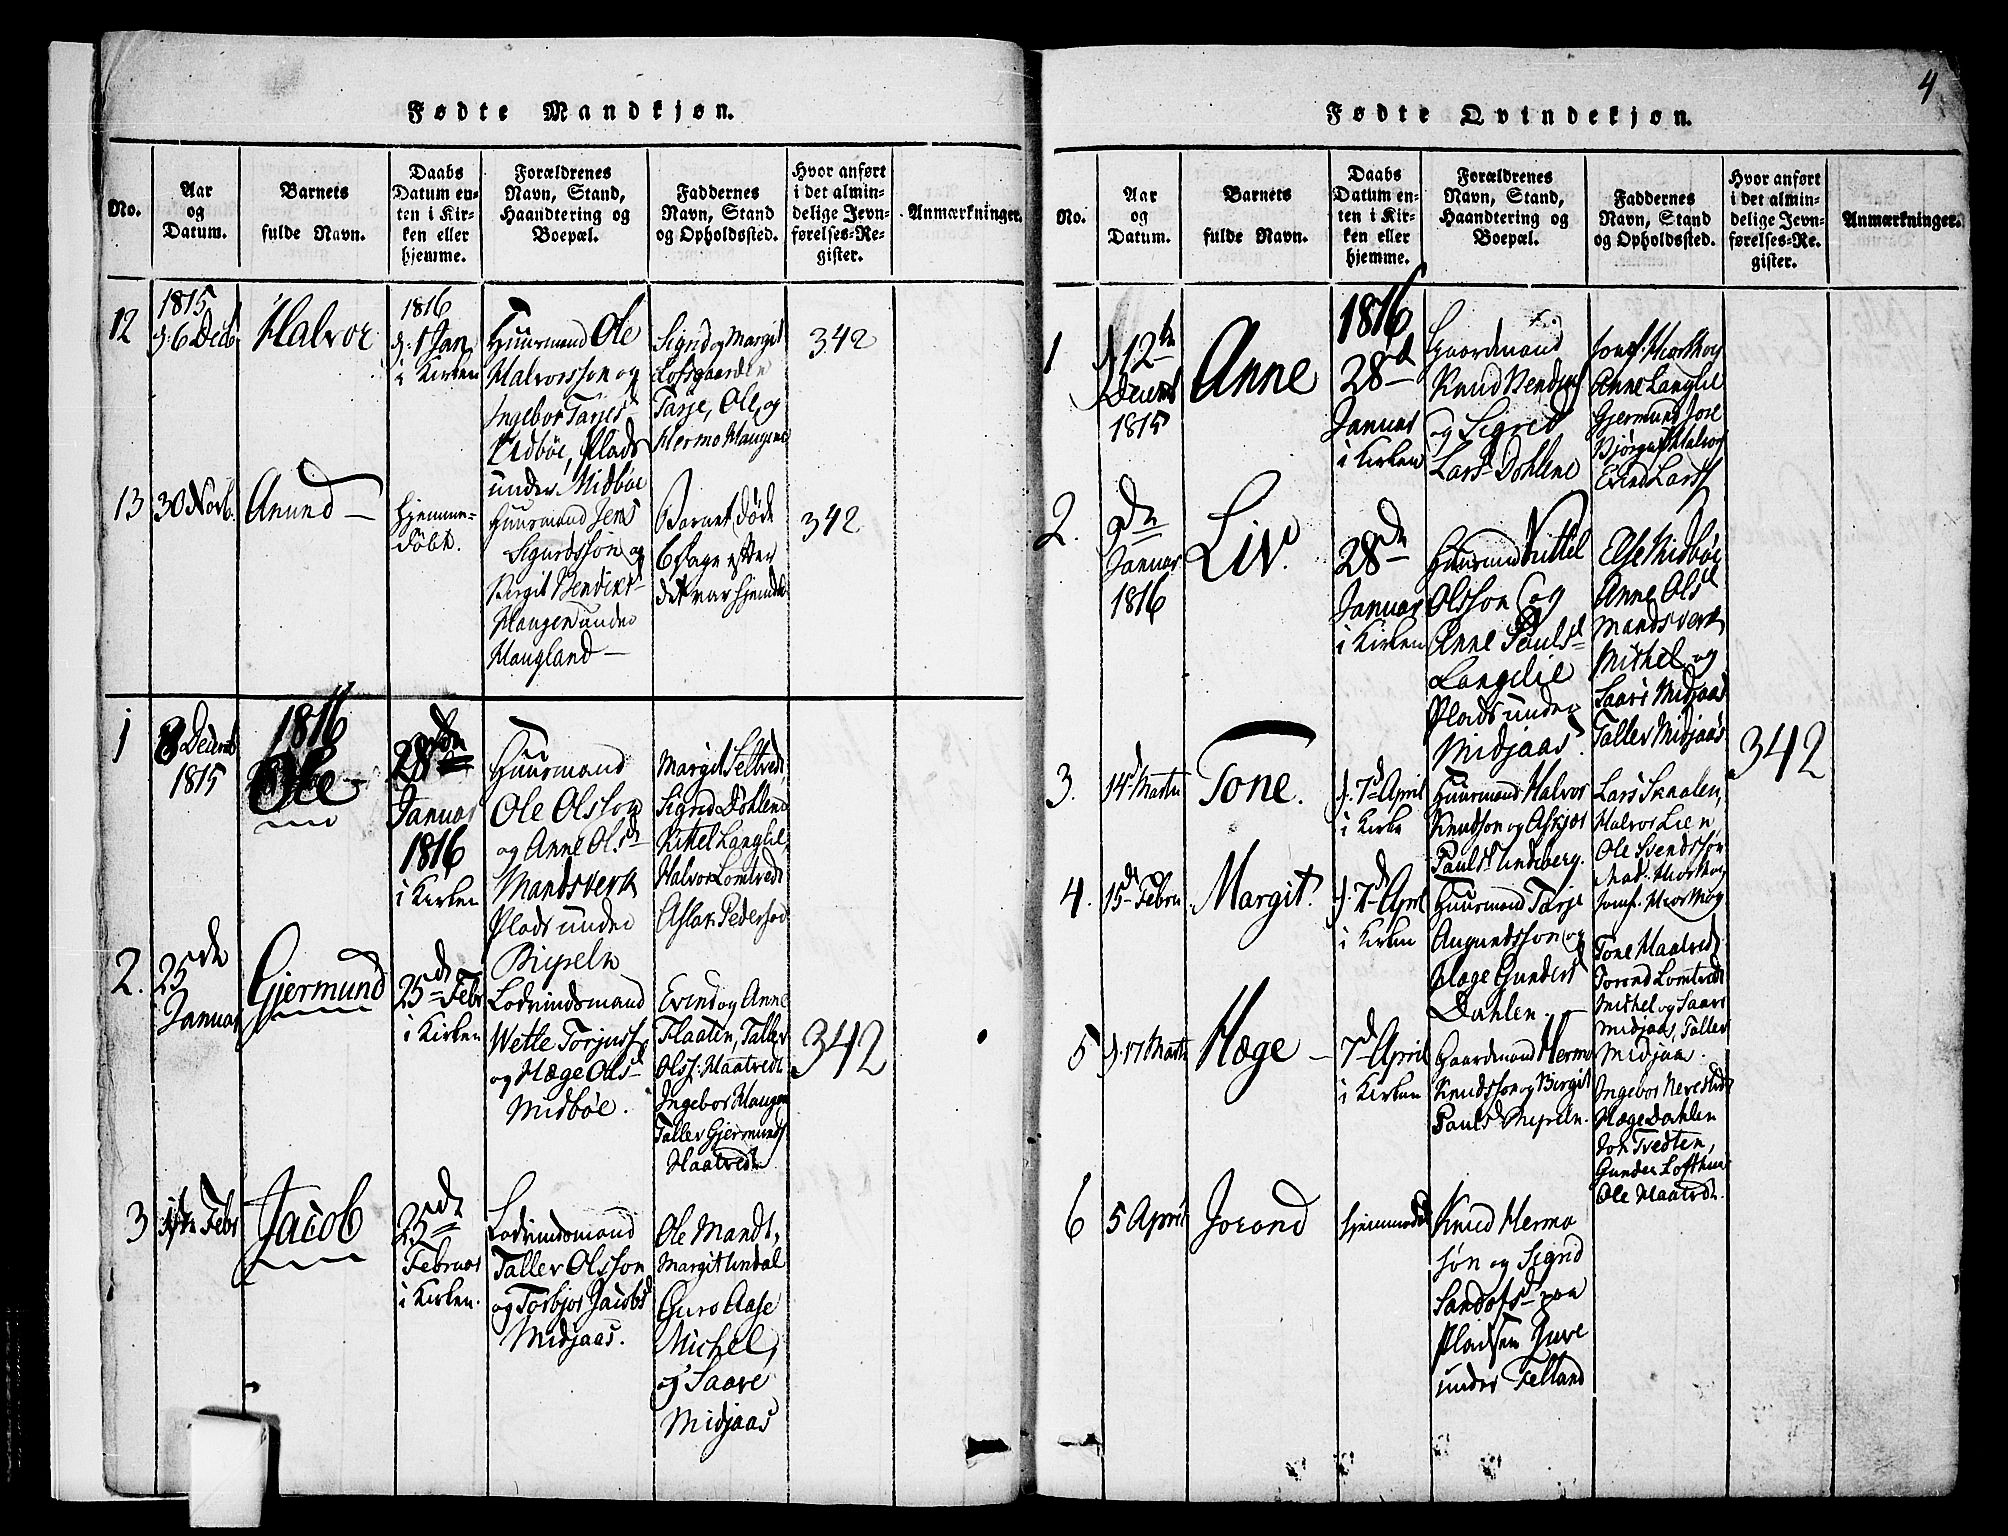 4
Fødte Mandkjøn.
No.
Aar
og
Datum.
Barnets
fulde Navn.
Daabs
Datum en-
ten i Kir-
ken eller
hjemme.
Forældrenes
Navn, Stand,
Haandtering og
Boepæl.
Faddernes
Navn, Stand
og Opholdssted.
Hvor anført
i det almin-
delige Jevn-
førelses-Re-
gister.
Anmærkninger.
12
1815
d. 6 Decb
Halvor
1816
d. 1 Jan
i Kirken
Huusmand Ole
Halvorsson og
Ingebor Tarjesd
Midbøe, Plads
under Midbøe
Sigrid og Margit
Lofsgaarden
Tarje, Ole, og
Hermo Haugene
342
13
30 Novb.
Anund
Hjemme-
døbt.
Huusmand Jens
Sigurdssøn og
Birgit Bendixd
Haugen under
Haugland
Barnet døde
6 Dage efter
det var hjemdt
342
1816
1
8 Decemb
1815
Ole
28de
Januar
1816
i Kirken
Huusmand
Ole Olsson
og Anne Olsd
Mandsverk
Plads under
Margit Seltvedt
Sigrid Dohlene
Kittel Langlie,
Halvor Lomtvedt
Aslak Pedersøn
2.
25de
Januar
Gjermund
25de Febr
i Kirken
Lodvindsmand
Wetle Torjuss
og Hæge Olsd
Midbøe.
Evend og Anne
Flaaten, Taller
Olss. Haatvedt
Ingebor Haugen
Taller Gjermunds
Haatvedt
342
3
1ste Febr
Jacob
25de
Februar
i Kirken.
Lodvindsmand
Taller Olsson
og Torbjor Jacobsd
Midjaas.
Ole Mandt,
Margit Undal
Guro Aase
Michel,
og Saare
Midjaas
Fødte Qvindekjøn.
No.
Aar
og
Datum.
Barnets
fulde Navn.
Daabs
Datum en-
ten i Kir-
ken eller
hjemme.
Forældrenes
Navn, Stand,
Haandtering og
Boepæl.
Faddernes
Navn, Stand
og Opholdssted.
Hvor anført
i det almin-
delige Jevn-
førelses-Re-
gister.
Anmærkninger.
1
d. 12te
Decemb
1815
Anne
1816
28de
Januar
i Kirken
Gaardmand
Knud
og Sigrid
Larsd Dohlene
Anne Langlie
Gjermund
Halvor
Evend Larss
2.
9de
Januar
1816
Liv.
28de
Januar
i Kirken
Huusmand Kittel
Olsson og
Anne Paulsd
Langelie
Plads under
Midjaas.
Else Midbøe
Anne Olsd
Mandsverk
Mikkel og
Saare Midjaas
Taller Midjaas
342
3.
14d Martii
Tone.
d. 7d April
i Kirke
Huusmand Halvor
Knudson og Askjer
Paulsd Lindeberg.
Lars Skaalen,
Halvor Lien
Ole Svendssøn
4.
15de Febru
Margit.
d. 7d April
i Kirken
Huusmand Tarje
Aanundsson og
Hæge Gundersd
Dahlen.
Tone Haatvedt
Torond Lomtvedt
Mikkel og Saare
Midjaas, Taller
Midjaa.
5
d. 17 Martii
Hæge
7d April
i Kirken
Gaardmand Hermo
Knudsson og Birgit
Paulsd
Ingebor Nerestedt
Hæge Dahlen
Jon Tvedten,
Gunder Lofthuus
Ole Haatvedt.
6
5 April
Jorond
hjemmedøbt
Knud Hermo
søn og Sigrid
Sandofsd paa
Pladsen Juve
under Felland